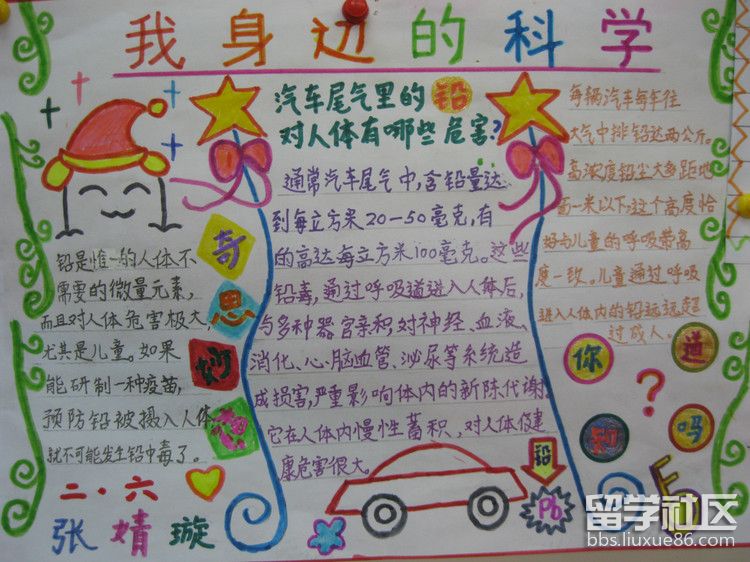 我身边的科学
汽车尾气里的铅
对人体有哪些危害?
通常汽车尾气中,含铅量达
到每立方米20-50毫克,有
的高达每立方米100毫克。这些
铅毒,通过呼吸道进入人体后,
与多种器官亲积,对神经、血液、
消化、心、脑血管、泌尿等系统造
成损害,严重影响体内的新陈代谢。
它在人体内慢性蓄积、对人体健
康危害很大。
铅是惟一的人体不
需要的微量元素,
而且对人体危害极大,
尤其是儿童。如果
能研制一种疫苗,
预防铅被摄入人体,
就不可能发生铅中毒了。
奇
思
妙
想
二·六
张婧璇
每辆汽车每年往
大气中排铅达两公斤。
高浓度铅尘大多距地
面一米以下,这个高度恰
好与儿童的呼吸带高
度一致。儿童通过呼吸
进入人体内的铅远远超
过成人。
你
知
道
吗
?
铅
Pb
留学社区
bbs.liuxue86.com